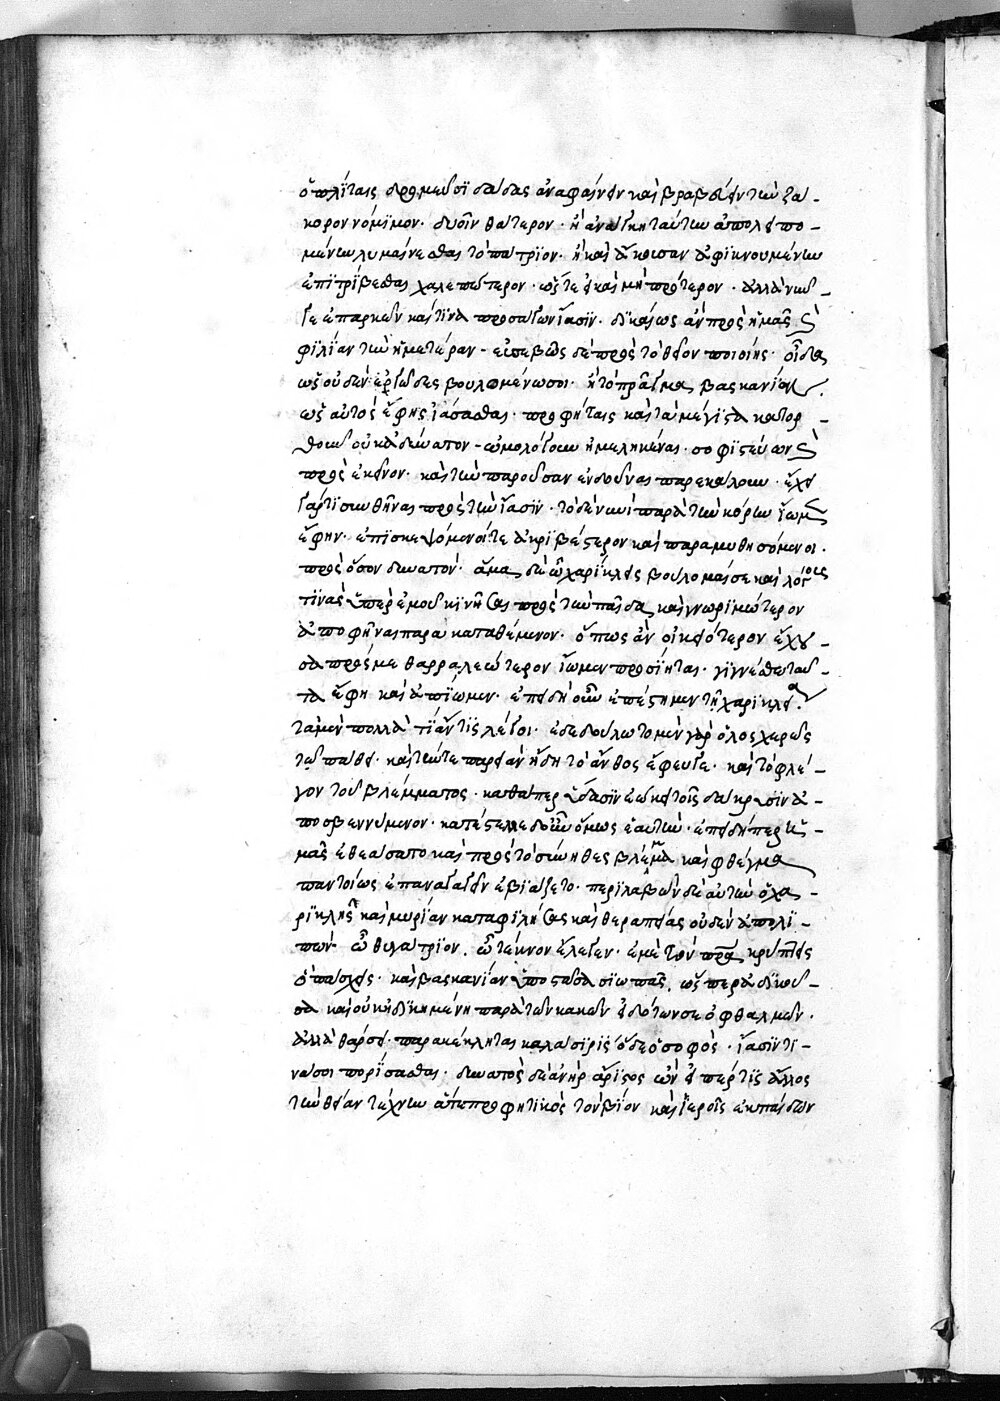 ὁπλίταις δρομεῦσι δᾷδας ἀναφαίνειν καὶ βραβεύειν τὴν ζά-
κορον νόμιμον· δυοῖν θάτερον· ἢ ἀνάγκη ταύτην ἀπολειπο-
μένην λυμαίνεσθαι τὸ πάτριον· ἢ καὶ ἄκουσαν ἀφικνουμένην
ἐπιτρίβεσθαι χαλεπώτερον· ὥστε εἰ καὶ μὴ πρότερον· ἀλλὰ νῦν
γε ἐπαρκεῖν καί τινα προσάγων ἴασιν· δικαίως ἂν πρὸς ἡμᾶς καὶ
φιλίαν τὴν ἡμετέραν· εὐσεβῶς δὲ πρὸς τὸ θεῖον ποιοίης· οἶδα
ὡς οὐδὲν ἐργῶδες βουλομένω σοι· ἢ τὸ πρᾶγμα βασκανίαν
ὡς αὐτὸς ἔφης ἰάσασθαι· προφήταις καὶ τὰ μέγιστα κατορ-
θοῦν οὐκ ἀδύνατον· ὡμολόγουν ἠμεληκέναι· σοφιστεύων καὶ
πρὸς ἐκεῖνον· καὶ τὴν παροῦσαν ἐνδοῦναι παρεκάλουν· ἔχει
γάρ τι συνθῆναι πρὸς τὴν ἴασιν· τὸ δὲ νυνὶ παρὰ τὴν κόρην ἴωμεν
ἔφην· ἐπισκεψόμενοί τε ἀκριβέστερον καὶ παραμυθησόμενοι·
πρὸς ὅσον δυνατόν· ἅμα δὲ ὦ χαρίκλεις βούλομαί σε καὶ λόγους
τινὰς ὑπὲρ ἐμοῦ κινῆσαι πρὸς τὴν παῖδα καὶ γνωριμώτερον
ἀποφῆναι παρακαταθέμενον· ὅπως ἂν οἰκειότερον ἔχου-
σα πρός με θαρραλεώτερον ἰώμενον προσίηται· γιγνέσθω ταῦ-
τα ἔφη καὶ ἀπίωμεν· ἐπειδὴ οὖν ἐπέστημεν τῇ χαρικλεία·
τὰ μὲν πολλὰ τί ἄν τις λέγοι· ἐδεδούλωτο μὲν γὰρ ὁλοσχερῶς
τῷ πάθει· καὶ τήν τε παρειὰν ἤδη τὸ ἄνθος ἔφευγε· καὶ τὸ φλέ-
γον τοῦ βλέμματος· καθάπερ ὕδασιν ἐώκει τοῖς δάκρυσιν ἀ-
ποσβεννύμενον· κατέστελλε δ' οὖν ὅμως ἑαυτὴν· ἐπειδήπερ ἡ-
μᾶς ἐθεάσατο καὶ πρὸς τὸ σύνηθες βλέμμα καὶ φθέγμα
παντοίως ἐπαναγαγεῖν ἐβιάζετο· περιλαβὼν δὲ αὐτὴν ὁ χα-
ρικλῆς καὶ μυρίαν καταφιλήσας καὶ θεραπείας οὐδὲν ἀπολι-
πών· ὦ θυγάτριον, ὦ τέκνον ἔλεγεν· ἐμὲ τὸν πρα κρύπτεις
ὃ πάσχεις· καὶ βασκανίαν ὑποστᾶσα σιωπᾶς, ὥσπερ ἀδικοῦ-
σα καὶ οὐκ ἠδικημένη παρὰ τῶν κακῶν εἰδότων σε ὀφθαλμῶν·
ἀλλὰ θάρσει· παρακέκληται καλάσιρις ὅδε ὁ σοφὸς· ἴασίν τι-
νά σοι πορίσασθαι· δυνατὸς δὲ ἀνὴρ ἄριστος ὢν εἴπερ τις ἄλλος
τὴν θείαν τέχνην ἅτε προφητικὸς τὸν βίον καὶ ἱεροῖς ἐκ παίδων